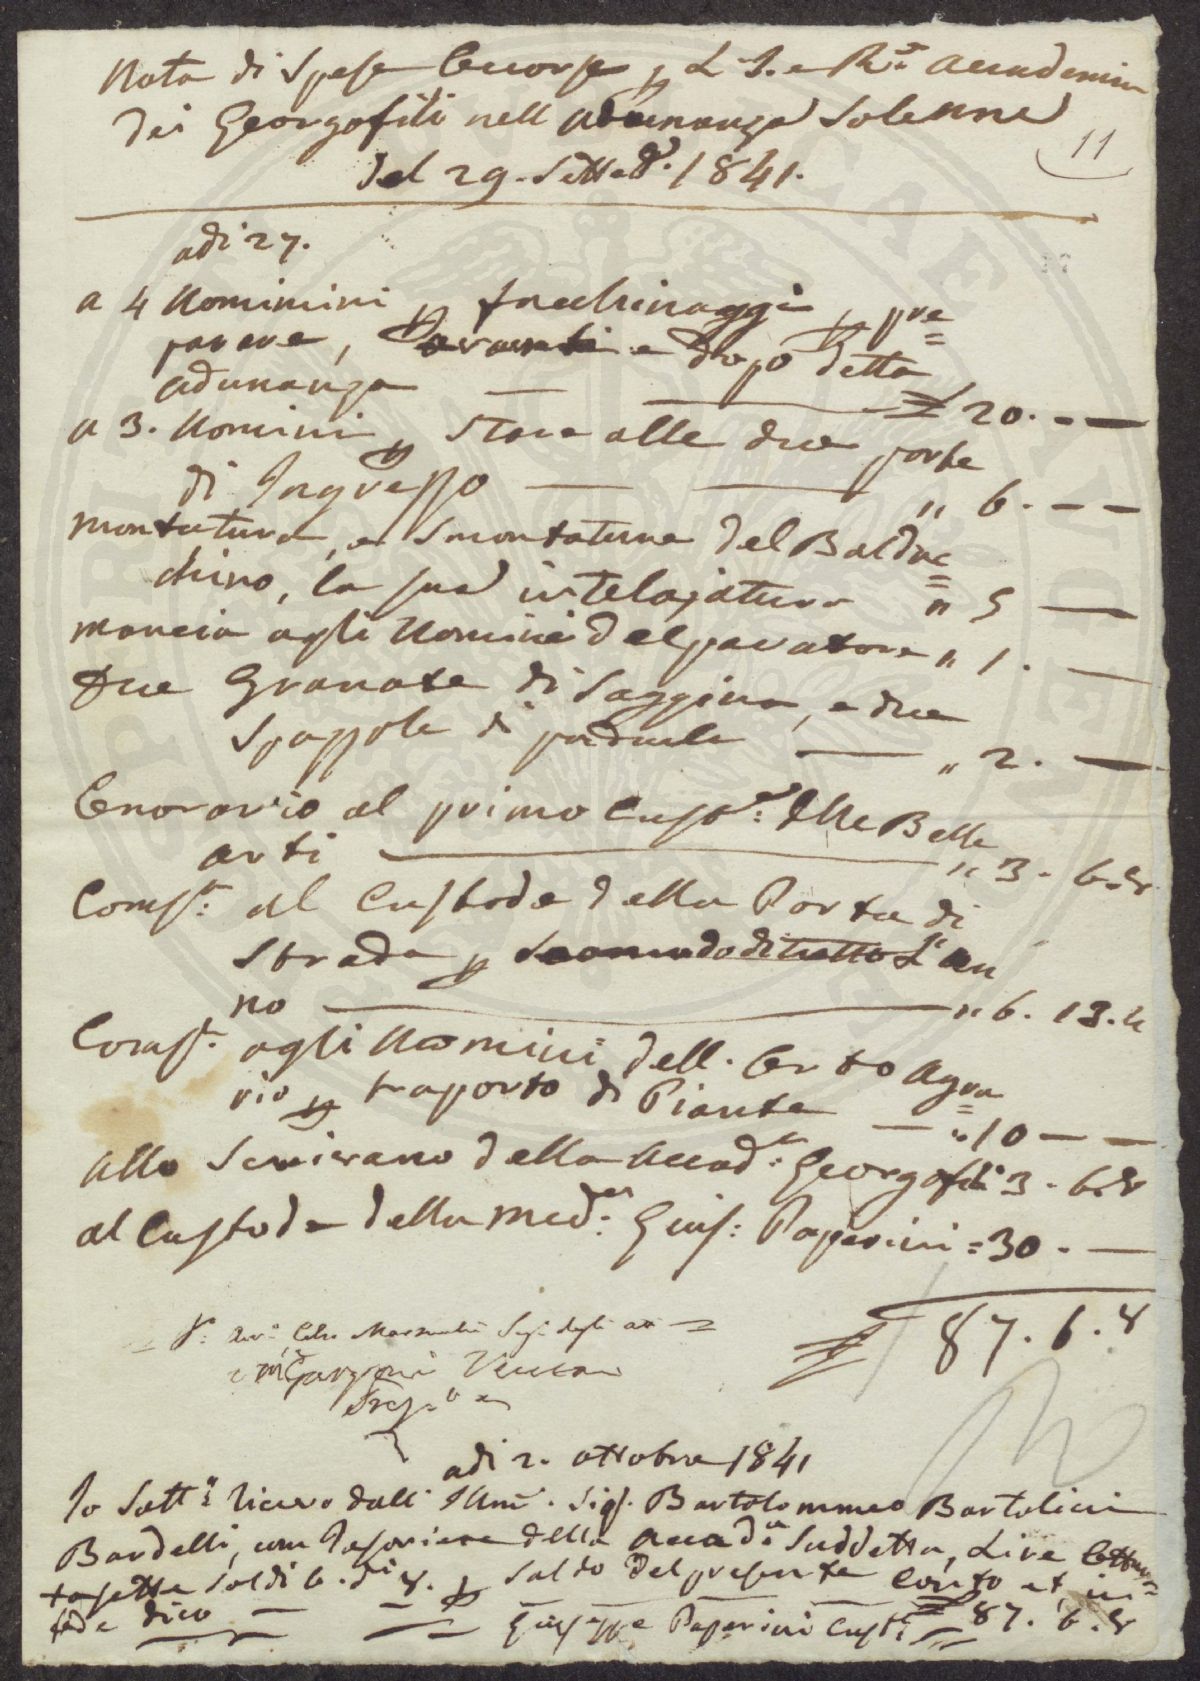 Nota di Spese Occorse p L' I. e R.e Accademia
dei Georgofili nell adunanza Solenne
del 29. Setteb.e 1841.
11
adi 27.
a 4 Uomimini p facchinaggi p pre=
parare, avanti e dopo detta
adunanza — £ 20. - —
a 3. Uomini p Stare alle due porte
di Ingresso — — " 6. - —
montatura, e Smontatura del Baldac=
chino, la sua intelajatura " 5 —
mancia agli Uomini del paratore " 1. —
due Granate di Saggina, e due
Spazzole di padule — " 2. —
Onorario al primo Cust.e delle Belle
arti — " 3. 6. 8
Comp.e al Custode della Porta di
Strada p Scomodo di tutto L' an
no — " 6. 13. 4
Comp.e agli Uomini dell. Orto Agra=
rio p traporto di Piante — " 10 — —
allo Scrivano della Accad.a Georgofili 3. 6. 8
al Custode della Med.a Gius: Paperini = 30. —
£ 87. 6. 8
adi 2. ottobre 1841
Io Sott.o ricevo dall' Illmo. Sig. Bartolommeo Bartolini
Bardelli, come Tesoriere della Accad.a Suddetta, Lire Ottan=
tasette Soldi 6. di 8. p saldo del presente Conto et in
fede dico — £ 87. 6. 8
Giuseppe Paperini Cust.e